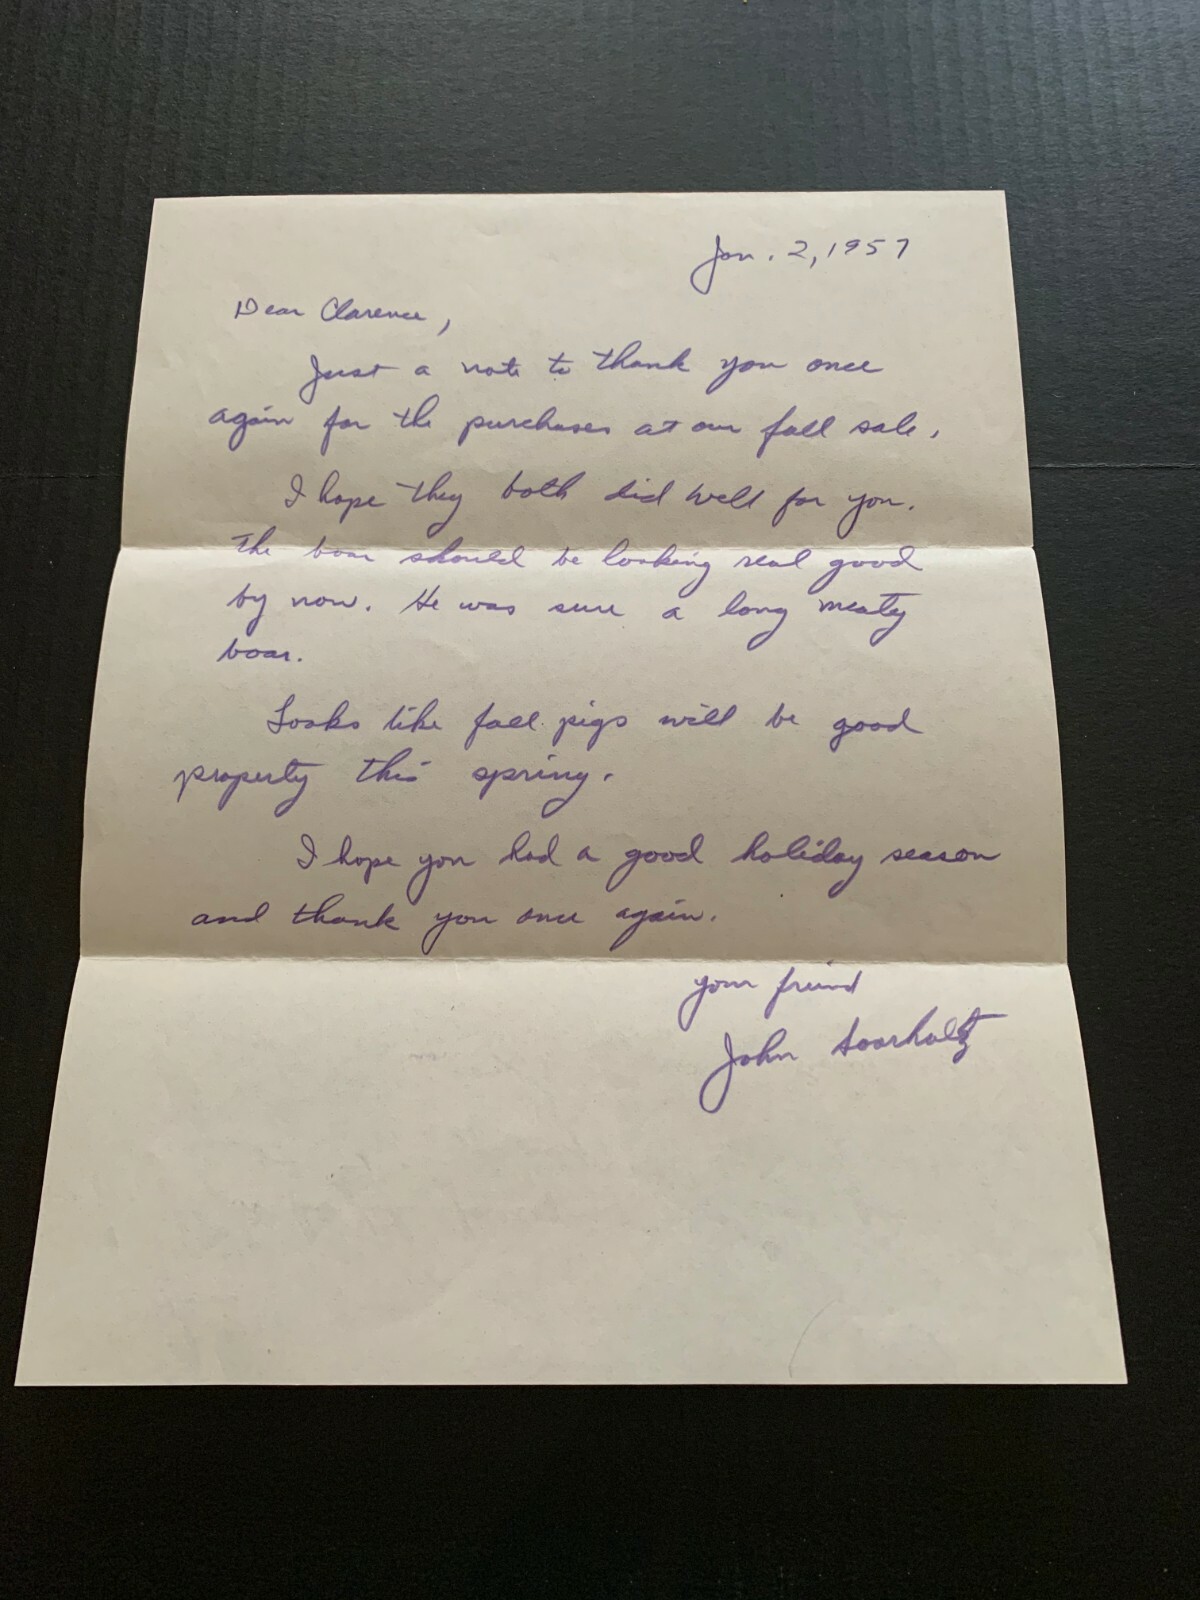 Jan. 2, 1957
Dear Clarence,
Just a note to thank you once
again for the purchases at our fall sale.
I hope they both did well for you.
The boar should be looking real good
by now. He was sure a long meaty
boar.
Looks like fall pigs will be good
property this spring.
I hope you had a good holiday season
and thank you once again.
your friend
John